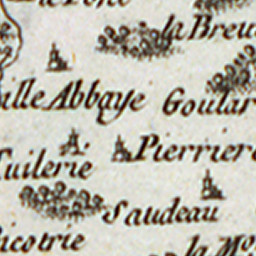 la Breu
ille Abbaye Goular
Pierrier
uilerie
Saudeau
icotrie
la Mo